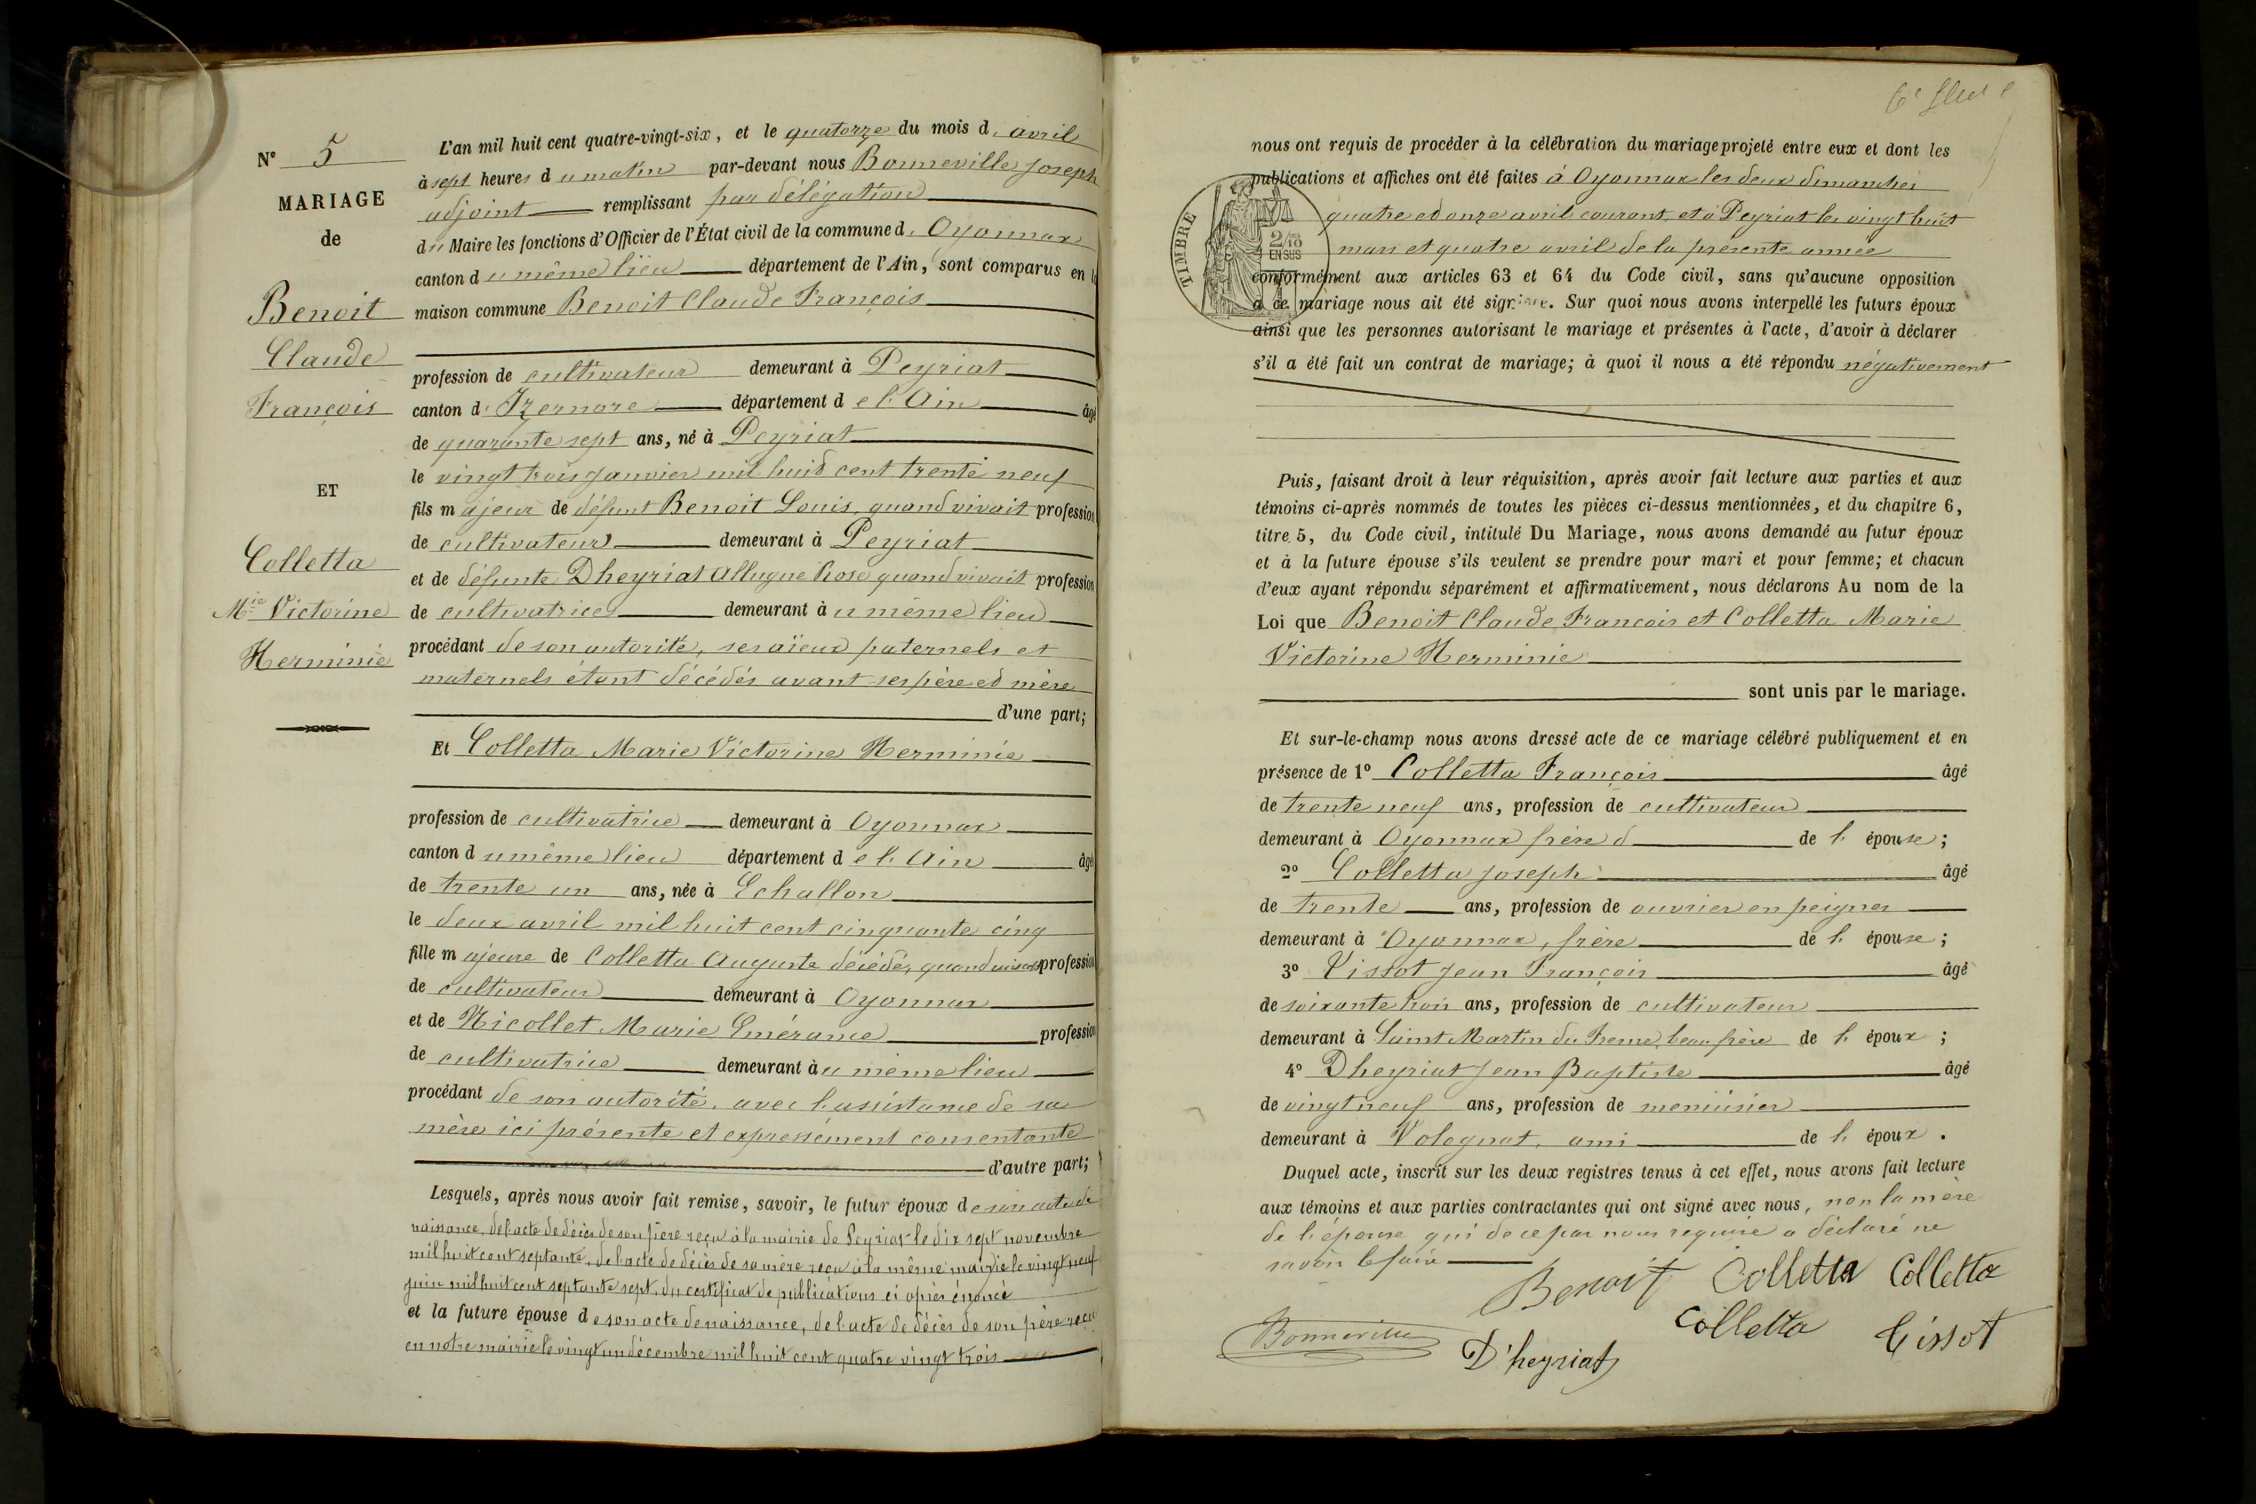 N° 5
MARIAGE
de
Benoit
Claude
François
ET
Colletta
Mie Victorine
Herminie
L'an mil huit cent quatre-vingt-six, et le quatorze du mois d' avril
à sept heures du matin par-devant nous Bonneville Joseph
adjoint remplissant par délégation
du Maire les fonctions d'Officier de l'État civil de la commune d' Oyonnax
canton du même lieu département de l'Ain, sont comparus en la
maison commune Benoit Claude François
profession de cultivateur demeurant à Peyriat
canton d' Izernore département de l'Ain âgé
de quarante sept ans, né à Peyriat
le vingt trois janvier mil huit cent trente neuf
fils majeur de défunt Benoit Louis, quand vivait profession
de cultivateur demeurant à Peyriat
et de défunte Dheyriat Allugne Rose quand vivait profession
de cultivatrice demeurant au même lieu
procédant de son autorité, ses aïeux paternels et
maternels étant décédés avant ses père et mère
d'une part;
Et Colletta Marie Victorine Herminie
profession de cultivatrice demeurant à Oyonnax
canton du même lieu département de l'Ain âgée
de trente un ans, née à Echallon
le deux avril mil huit cent cinquante cinq
fille majeure de Colletta Auguste décédé, quand vivait profession
de cultivateur demeurant à Oyonnax
et de Nicollet Marie Emérance profession
de cultivatrice demeurant au même lieu
procédant de son autorité, avec l'assistance de sa
mère ici présente et expressément consentante
d'autre part;
Lesquels, après nous avoir fait remise, savoir, le futur époux de son acte de
naissance, de l'acte de décès de son père reçu à la mairie de Peyriat le dix sept novembre
mil huit cent septante, de l'acte de décès de sa mère reçu à la même mairie le vingt neuf
juin mil huit cent septante sept, du certificat de publications ci après énoncé
et la future épouse de son acte de naissance, de l'acte de décès de son père reçu
en notre mairie le vingt un décembre mil huit cent quatre vingt trois
6e
nous ont requis de procéder à la célébration du mariage projeté entre eux et dont les
publications et affiches ont été faites à Oyonnax les deux dimanches
quatre et onze avril courant, et à Peyriat les vingt huit
mars et quatre avril de la présente année
TIMBRE
2/10 EN SUS
conformément aux articles 63 et 64 du Code civil, sans qu'aucune opposition
à ce mariage nous ait été signifiée. Sur quoi nous avons interpellé les futurs époux
ainsi que les personnes autorisant le mariage et présentes à l'acte, d'avoir à déclarer
s'il a été fait un contrat de mariage; à quoi il nous a été répondu négativement
Puis, faisant droit à leur réquisition, après avoir fait lecture aux parties et aux
témoins ci-après nommés de toutes les pièces ci-dessus mentionnées, et du chapitre 6,
titre 5, du Code civil, intitulé Du Mariage, nous avons demandé au futur époux
et à la future épouse s'ils veulent se prendre pour mari et pour femme; et chacun
d'eux ayant répondu séparément et affirmativement, nous déclarons Au nom de la
Loi que Benoit Claude François et Colletta Marie
Victorine Herminie
sont unis par le mariage.
Et sur-le-champ nous avons dressé acte de ce mariage célébré publiquement et en
présence de 1° Colletta François âgé
de trente neuf ans, profession de cultivateur
demeurant à Oyonnax frère d de l' épouse;
2° Colletta Joseph âgé
de trente ans, profession de ouvrier en peignes
demeurant à Oyonnax, frère de l' épouse;
3° Tissot Jean François âgé
de soixante trois ans, profession de cultivateur
demeurant à Saint Martin du Fresne, beau frère de l' époux;
4° Dheyriat Jean Baptiste âgé
de vingt neuf ans, profession de menuisier
demeurant à Volognat, ami de l' époux.
Duquel acte, inscrit sur les deux registres tenus à cet effet, nous avons fait lecture
aux témoins et aux parties contractantes qui ont signé avec nous, non la mère
de l'épouse qui de ce par nous requise a déclaré ne
savoir le faire
Benoit Colletta Colletta
Colletta Tissot
Bonneville
D'heyriat